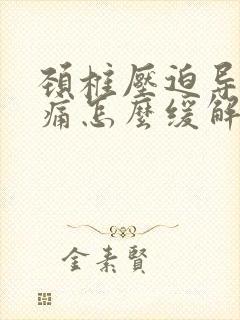 頸椎壓迫导
痛怎麼缓解
金素賢